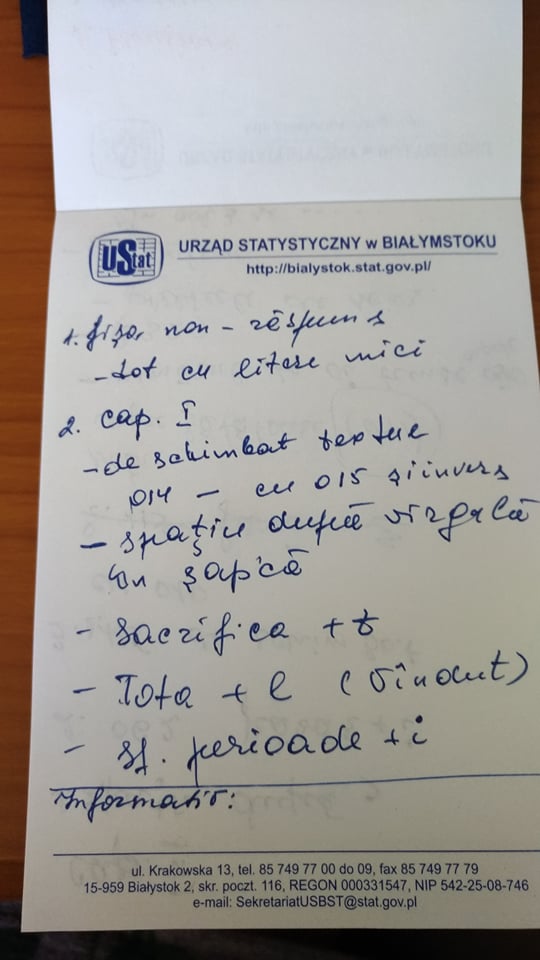 UStat
URZĄD STATYSTYCZNY w BIAŁYMSTOKU
http://bialystok.stat.gov.pl/
1. fișa, non-răspuns
- tot cu litere mici
2. cap. I
- de schimbat textul
014 - cu 015 și invers
- spațiu după virgulă
în șapcă
- sacrifica + t
- Tota + l (vîndut)
- sf. perioade + i
Informativ:
ul. Krakowska 13, tel. 85 749 77 00 do 09, fax 85 749 77 79
15-959 Białystok 2, skr. poczt. 116, REGON 000331547, NIP 542-25-08-746
e-mail: SekretariatUSBST@stat.gov.pl